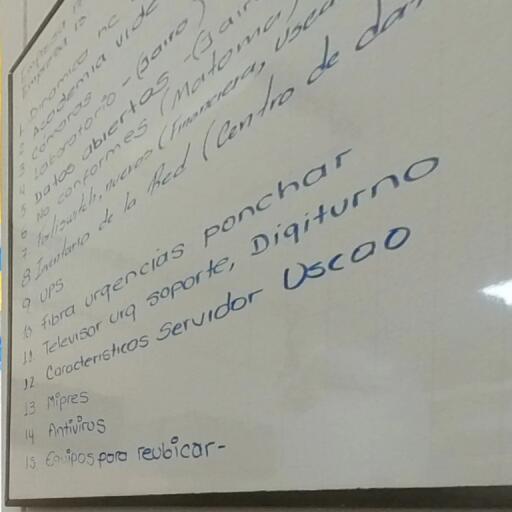 Empresa
Empresa
1 Dinamica
2 Academia
3 Cámaras
4 Laboratorio - (Jairo)
5 Datos abiertos - (Jairo
6 No conformes (Matoma)
7 nuevos (Financiera, Uscao
8 Inventario de la Red (Centro de dat
9 UPS
10 Fibra urgencias ponchar
11 Televisor urg soporte, Digiturno
12 Caracteristicas Servidor Uscao
13 Mipres
14 Antivirus
15 Equipos para reubicar-